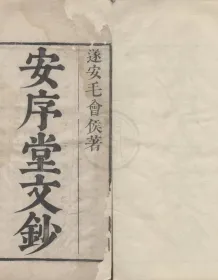 遂安毛會侯著
安序堂文鈔